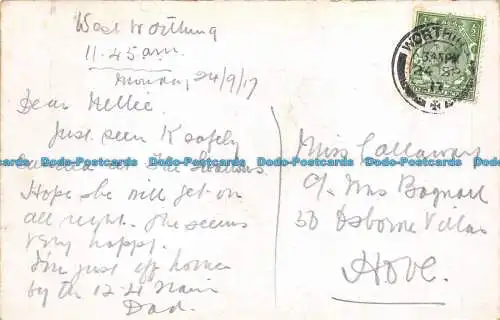 West Worthing
11.45 am.
Monday, 24/9/17
Dear Nellie
Just seen K safely
at The Swallows.
Hope she will get on
all right. She seems
very happy.
I'm just off home
by the 12.4 train
Dad.
WORTHING
3.45 PM
24 SP
17
Miss Callaway
c/o Mrs Bagnall
30 Osborne Villas
HOVE.
Dodo-Postcards Dodo-Postcards Dodo-Postcards Dodo-Postcards Dodo-Postcards Dodo-Postcards